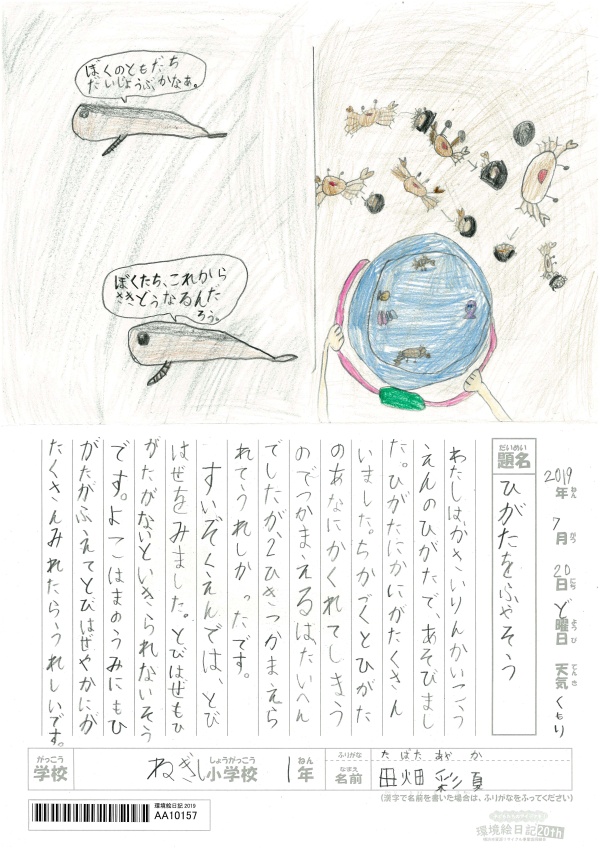 ぼくのともだち
だいじょうぶかなぁ。
ぼくたち、これから
さきどうなるんだ
ろう。
2019年ねん 7月がつ 20日にち ど曜日ようび 天気てんき くもり
題名だいめい ひがたをふやそう
わたしは、かさいりんかいこう
えんのひがたで、あそびまし
た。ひがたにかにがたくさん
いました。ちかづくとひがた
のあなにかくれてしまう
のでつかまえるは、たいへん
でしたが、2ひきつかまえら
れてうれしかったです。
すいぞくえんでは、とび
はぜをみました。とびはぜもひ
がたがないといきられないそう
です。よこはまのうみにもひ
がたがふえてとびはぜやかにが
たくさんみれたらうれしいです。
がっこう 学校 ねぎし小しょう学がっ校こう 1年ねん
ふりがな たばた あやか
なまえ 名前 田畑 彩夏
(漢字で名前を書いた場合は、ふりがなをふってください)
環境絵日記2019
AA10157
環境絵日記20th